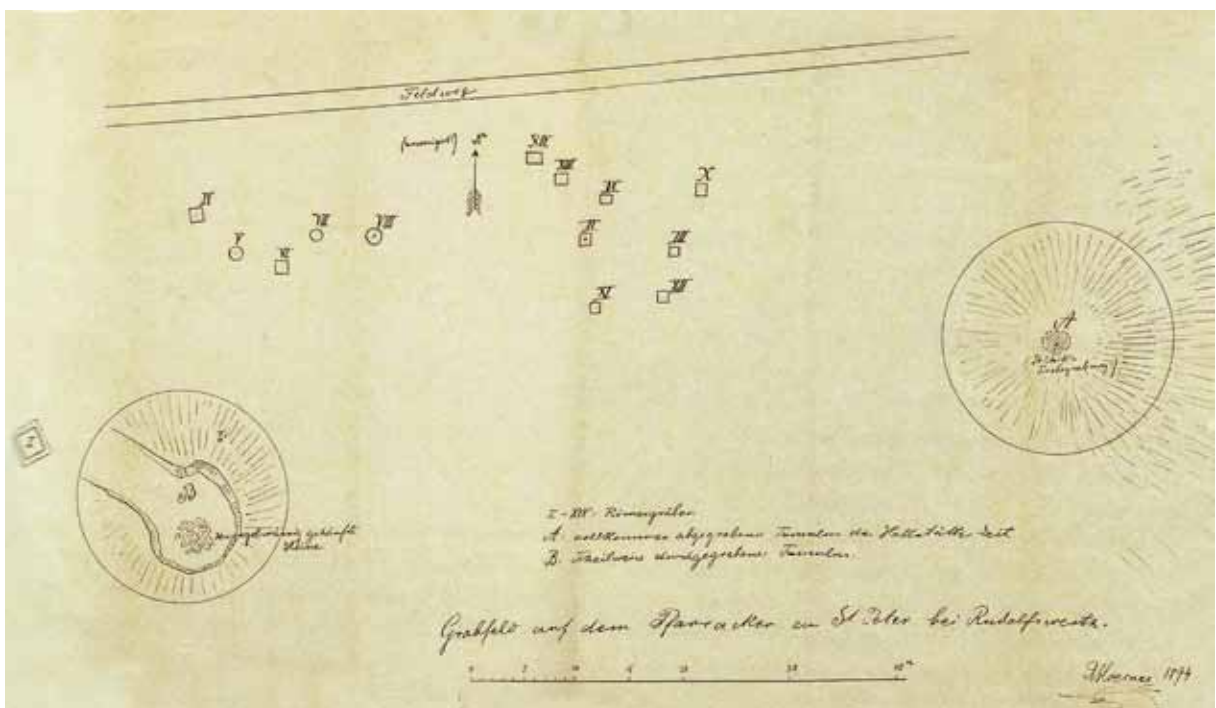 Feldweg
N
XIV
XIII
IX
X
IV
VII
VIII
V
VI
II
III
XI
XII
A
I
B
Steine
I - XIV. Römergräber
A. vollkommen abgegrabener Tumulus der Hallstätter Zeit
B. Theilweise durchgegrabener Tumulus.
Grabfeld auf dem Pfarracker in St Peter bei Rudolfswerth.
0 5 10 15 20 30 40 m
1894